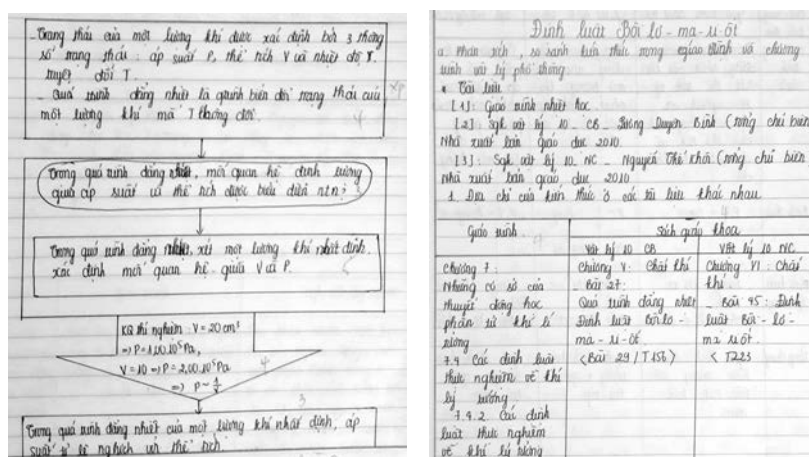 - Trạng thái của một lượng khí được xác định bởi 3 thông
số trạng thái: áp suất P, thể tích V và nhiệt độ T.
tuyệt đối T.
- Quá trình đẳng nhiệt là qtrình biến đổi trạng thái của
một lượng khí mà T không đổi.
Trong quá trình đẳng nhiệt, mối quan hệ định lượng
giữa áp suất và thể tích được biểu diễn ntn?
Trong quá trình đẳng nhiệt, xét một lượng khí nhất định.
xác định mối quan hệ giữa V và P.
KQ thí nghiệm: V = 20 cm³
=> P = 1,00.10⁵ Pa,
V = 10 => P = 2,00.10⁵ Pa
=> P ~ 1/V
Trong quá trình đẳng nhiệt của một lượng khí nhất định, áp
suất tỉ lệ nghịch với thể tích.
Định luật Bôi lơ - ma - ri - ốt
a. Phân tích, so sánh kiến thức trong giáo trình và chương
trình vật lý phổ thông.
* Tài liệu
[1]: Giáo trình nhiệt học.
[2]: Sgk vật lý 10 - CB - Lương Duyên Bình (tổng chủ biên
Nhà xuất bản giáo dục 2010
[3]: Sgk vật lý 10 NC - Nguyễn Thế Khôi (tổng chủ biên
Nhà xuất bản giáo dục 2010
1. Địa chỉ của kiến thức ở các tài liệu khác nhau.
Giáo trình
Sách giáo khoa
Vật lý 10 CB
Vật lý 10 NC
Chương 7:
Những cơ sở của
thuyết động học
phân tử khí lí
tưởng
7.4 Các định luật
thực nghiệm về khí
lý tưởng
7.4.2 Các định
luật thực nghiệm
về khí lý tưởng
Chương V: Chất khí
- Bài 29:
Quá trình đẳng nhiệt
Định luật Bôi lơ -
ma - ri - ốt
(Bài 29 / T156)
Chương VI: Chất
khí.
- Bài 45: Định
luật Bôi - lơ -
ma ri ốt.
< T223